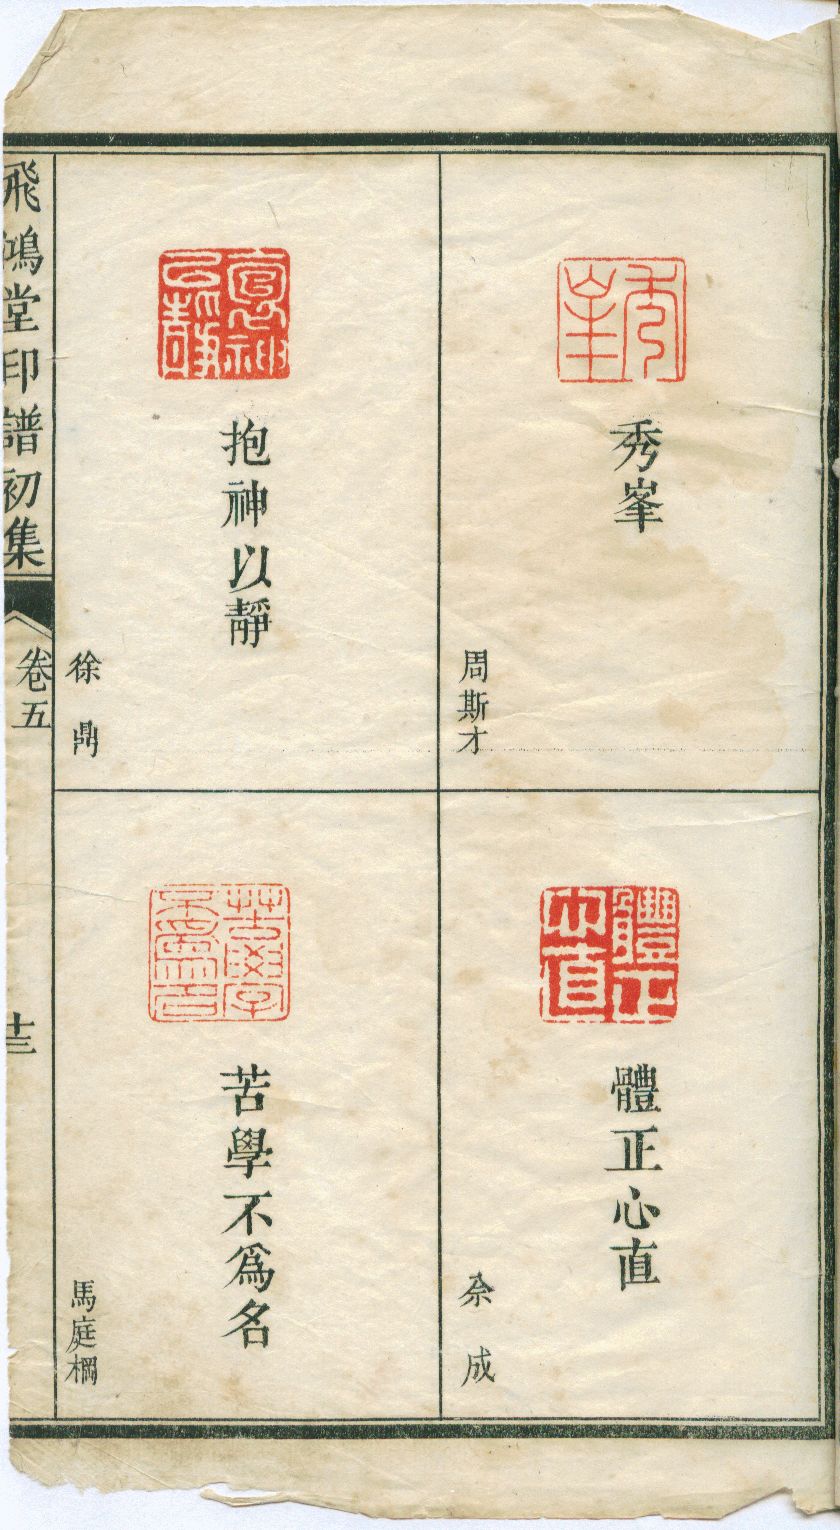 秀峯
周斯才
體正心直
佘成
抱神以靜
徐鼎
苦學不爲名
馬庭棡
飛鴻堂印譜初集
卷五
十三